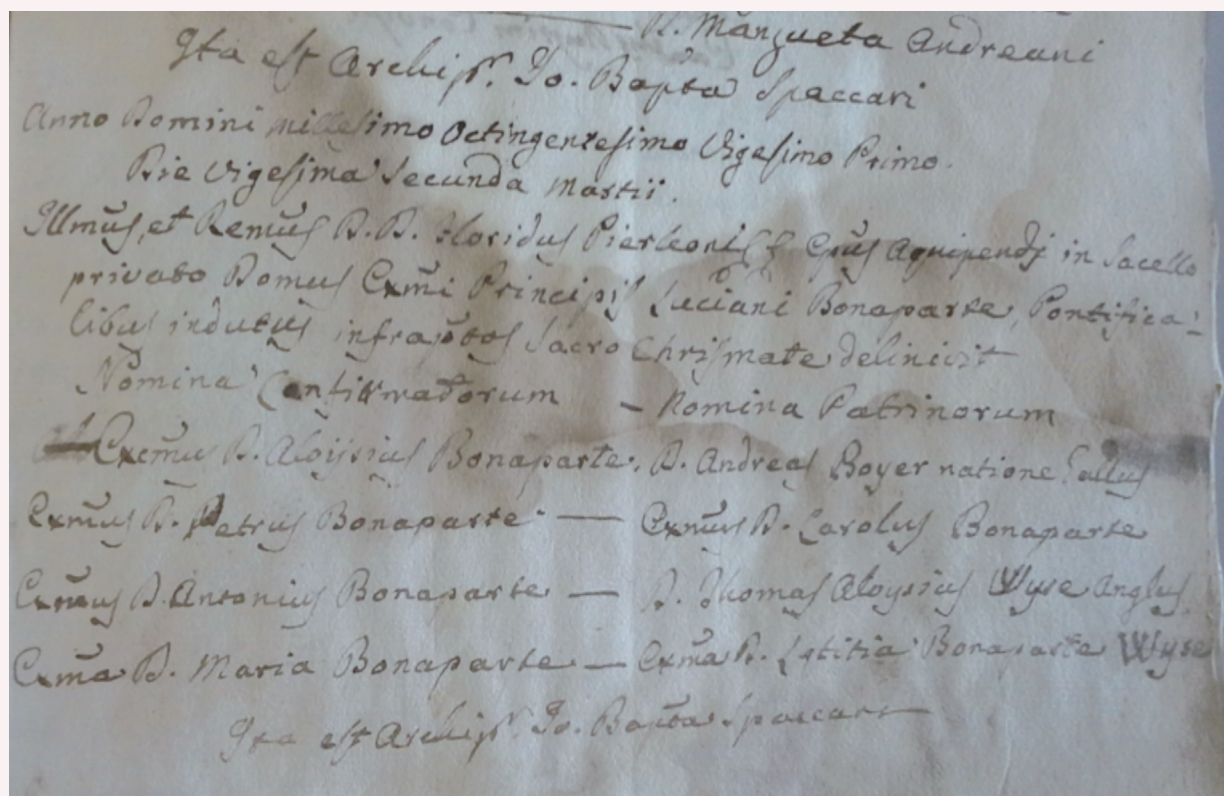 D. Mansueta Andreani
Ita est Archipr. Jo. Bapta Spaccari
Anno Domini millesimo Octingentesimo Vigesimo Primo.
Die Vigesima Secunda Martii.
Illmus, et Remus D. D. Floridus Pierleoni Epus Aquipendj in Sacello
privato Domus Exmi Principis Luciani Bonaparte, Pontifica:
libus indutus infraptos Sacro Chrismate delinivit
Nomina Confirmatorum – Nomina Patrinorum
Exemus D. Aloysius Bonaparte. D. Andreas Boyer natione Gallus
Exmus D. Petrus Bonaparte — Exmus D. Carolus Bonaparte
Exmus D. Antonius Bonaparte — D. Thomas Aloysius Wyse Anglus
Exma D. Maria Bonaparte — Exma D. Lętitia Bonaparte Wyse
Ita est Archipr. Jo. Bapta Spaccari